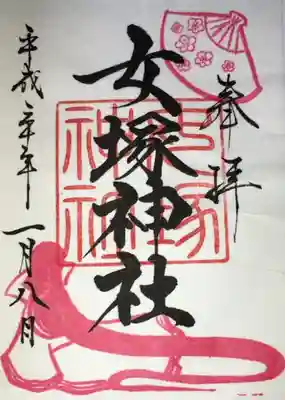 奉拝
女塚神社
女塚神社
平成二十年一月八日